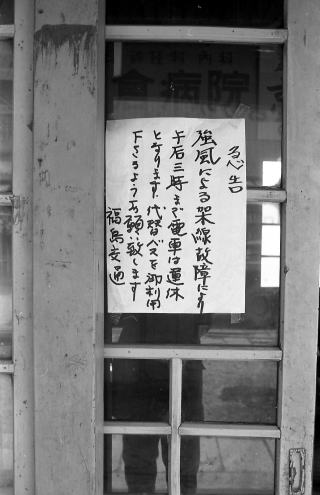 急告
強風による架線故障により
午后三時まで電車は運休
となります。代替バスを御利用
下さるようお願い致します
福島交通
会病院